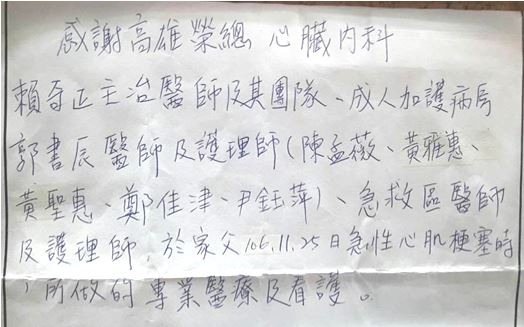 感謝高雄榮總 心臟內科
賴奇正主治醫師及其團隊、成人加護病房
郭書辰醫師及護理師(陳孟薇、黃雅惠、
黃聖惠、鄭佳津、尹鈺萍)、急救區醫師
及護理師,於家父106.11.25日急性心肌梗塞時
,所做的專業醫療及看護。